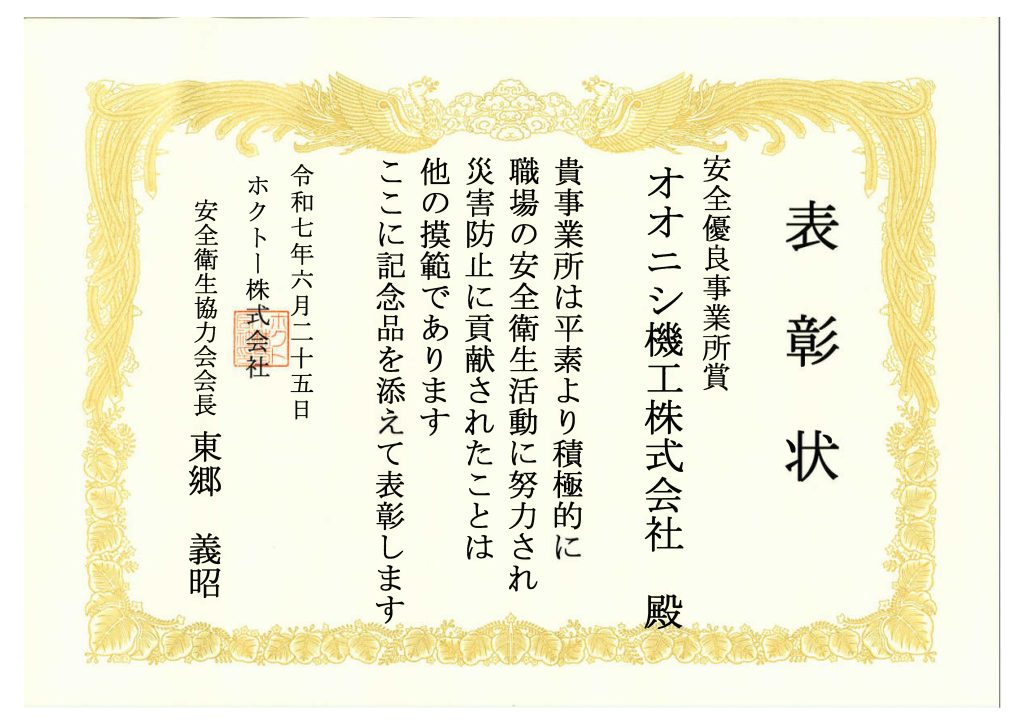 表彰状
安全優良事業所賞
オオニシ機工株式会社 殿
貴事業所は平素より積極的に
職場の安全衛生活動に努力され
災害防止に貢献されたことは
他の摸範であります
ここに記念品を添えて表彰します
令和七年六月二十五日
ホクトー株式会社
安全衛生協力会会長 東郷 義昭